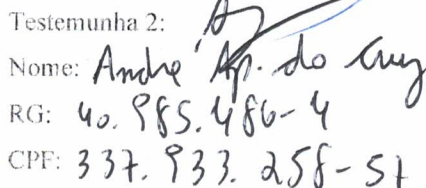 Testemunha 2:
Nome: André Ap. do Cruz
RG: 40.985.486-4
CPF: 337.933.258-51